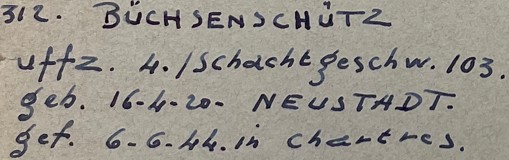 312. BÜCHSENSCHÜTZ
uffz. 4./Schachtgeschw. 103.
geb. 16-4-20- NEUSTADT.
gef. 6-6-44. in Chartres.